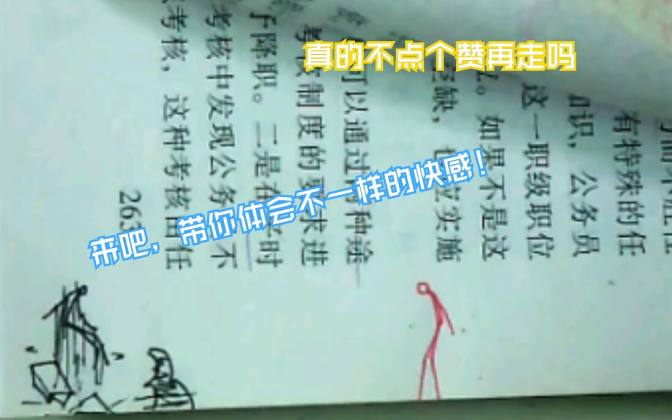 真的不点个赞再走吗
来吧，带你体会不一样的快感！
有特殊的任
识，公务员
这一职级职位
。如果不是这
缺，也应实施
可以通过两种途
考核制度的要求进
予降职。二是在平时
考核中发现公务员不
考核，这种考核由任
263